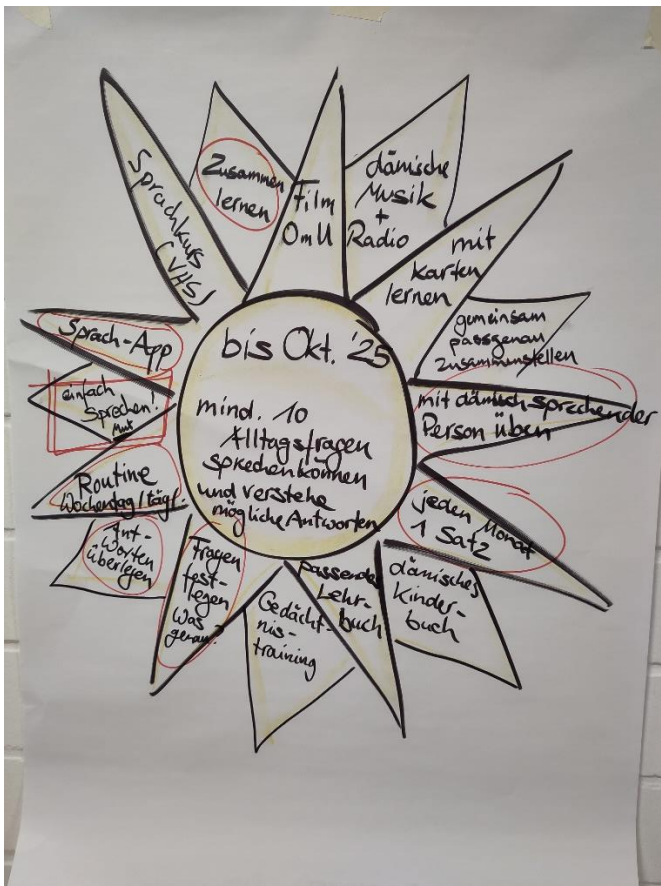 bis Okt. '25
mind. 10
Alltagsfragen
sprechen können
und verstehe
mögliche Antworten
Film
OmU
dänische
Musik
+
Radio
mit
Karten
lernen
gemeinsam
passgenau
zusammenstellen
mit dänisch-sprechender
Person üben
jeden Monat
1 Satz
dänisches
Kinder-
buch
passendes
Lehr-
buch
Gedächt-
nis-
training
Fragen
fest-
legen
Was
genau?
Ant-
worten
überlegen
Routine
Wochentag/tägl.
einfach
Sprechen!
Mut
Sprach-App
Sprachkurs
(VHS)
Zusammen
lernen